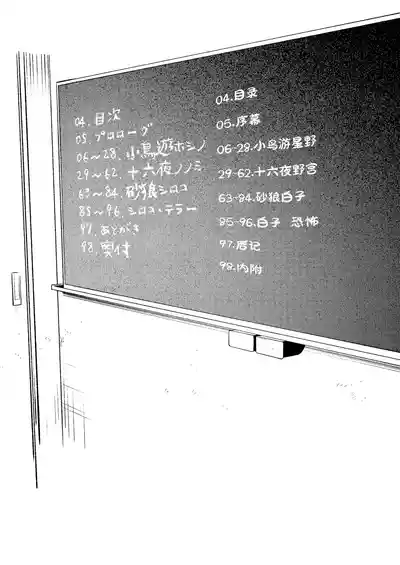 04.目次
05.プロローグ
06〜28.小鳥遊ホシノ
29〜62.十六夜ノノミ
63〜84.砂狼シロコ
85〜96.シロコ*テラー
97.あとがき
98.奥付
04.目录
05.序幕
06-28.小鸟游星野
29-62.十六夜野宫
63-84.砂狼白子
85-96.白子 恐怖
97.后记
98.内附